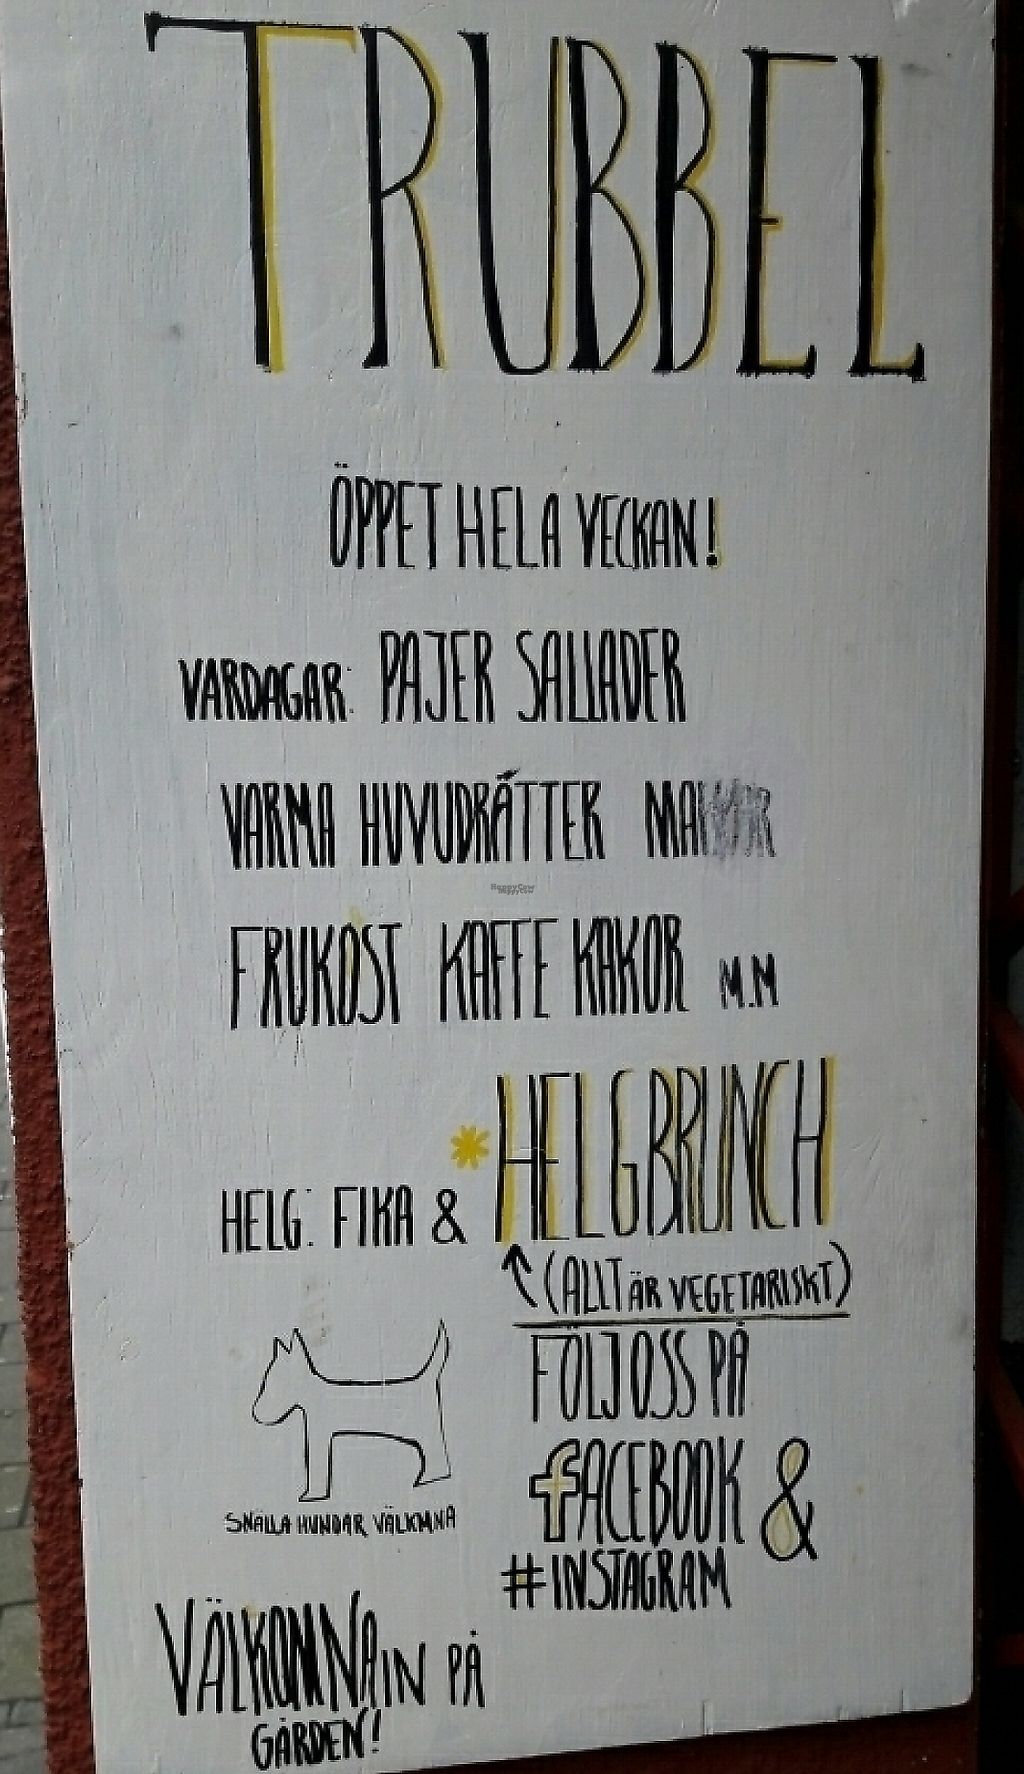 TRUBBEL
ÖPPET HELA VECKAN!
VARDAGAR: PAJER SALLADER
VARMA HUVUDRÄTTER
FRUKOST KAFFE KAKOR M.M
HELG: FIKA & *HELGBRUNCH
(ALLT ÄR VEGETARISKT)
FÖLJ OSS PÅ
FACEBOOK &
#INSTAGRAM
SNÄLLA HUNDAR VÄLKMNA
VÄLKOMNA IN PÅ
GÅRDEN!
HappyCow